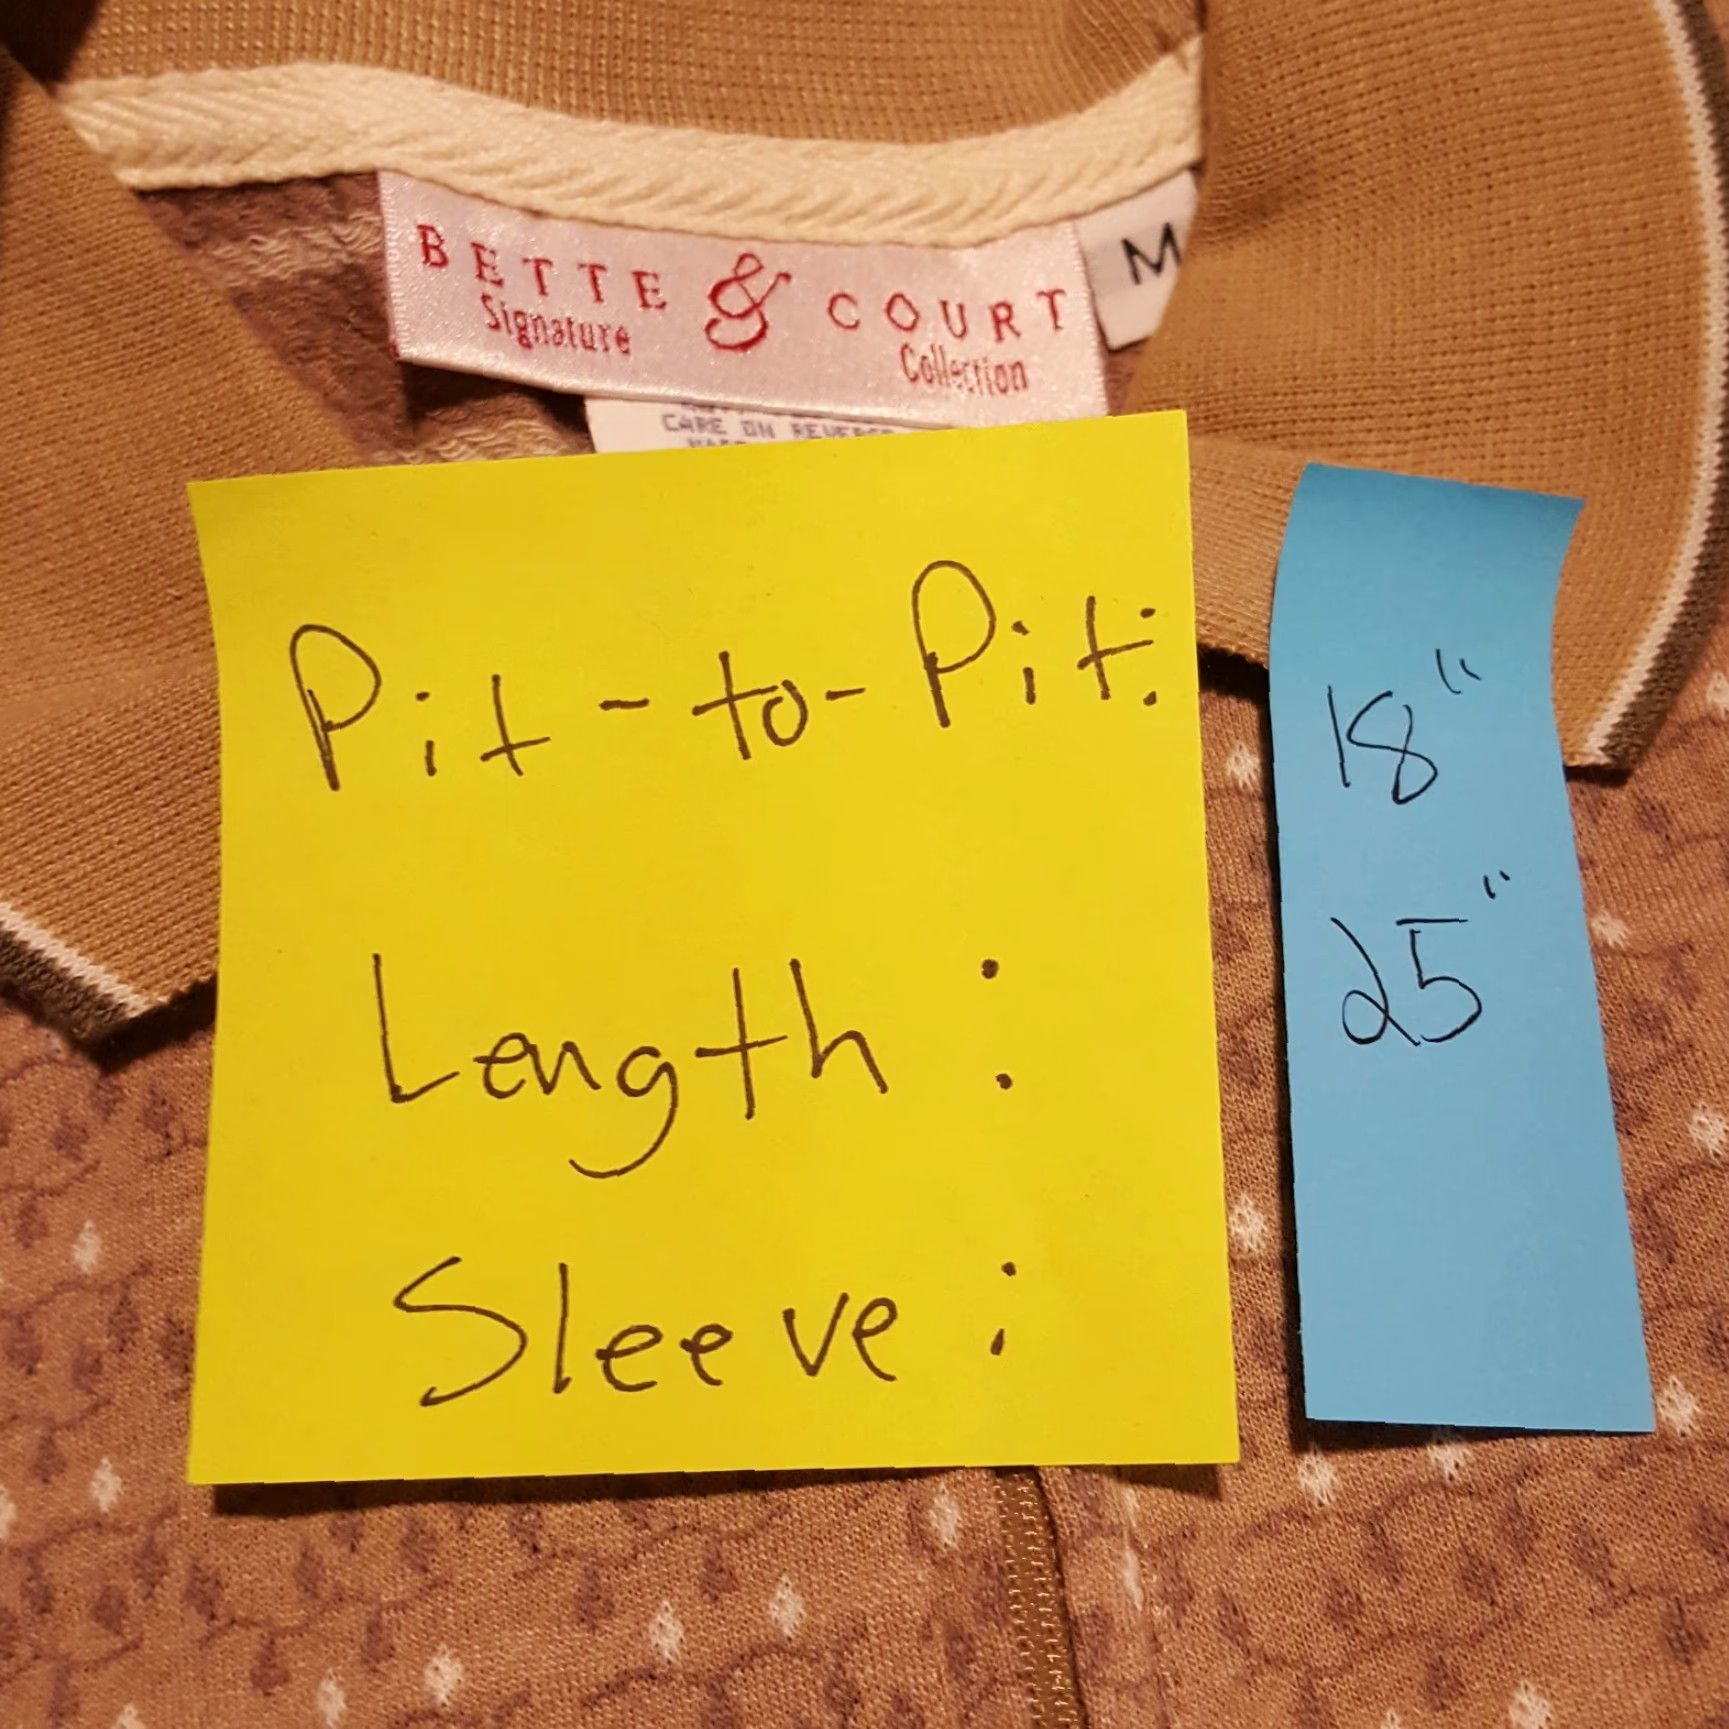 BETTE & COURT
Signature Collection
M
CARE ON REVERSE
Pit-to-Pit: 18"
Length: 25"
Sleeve: